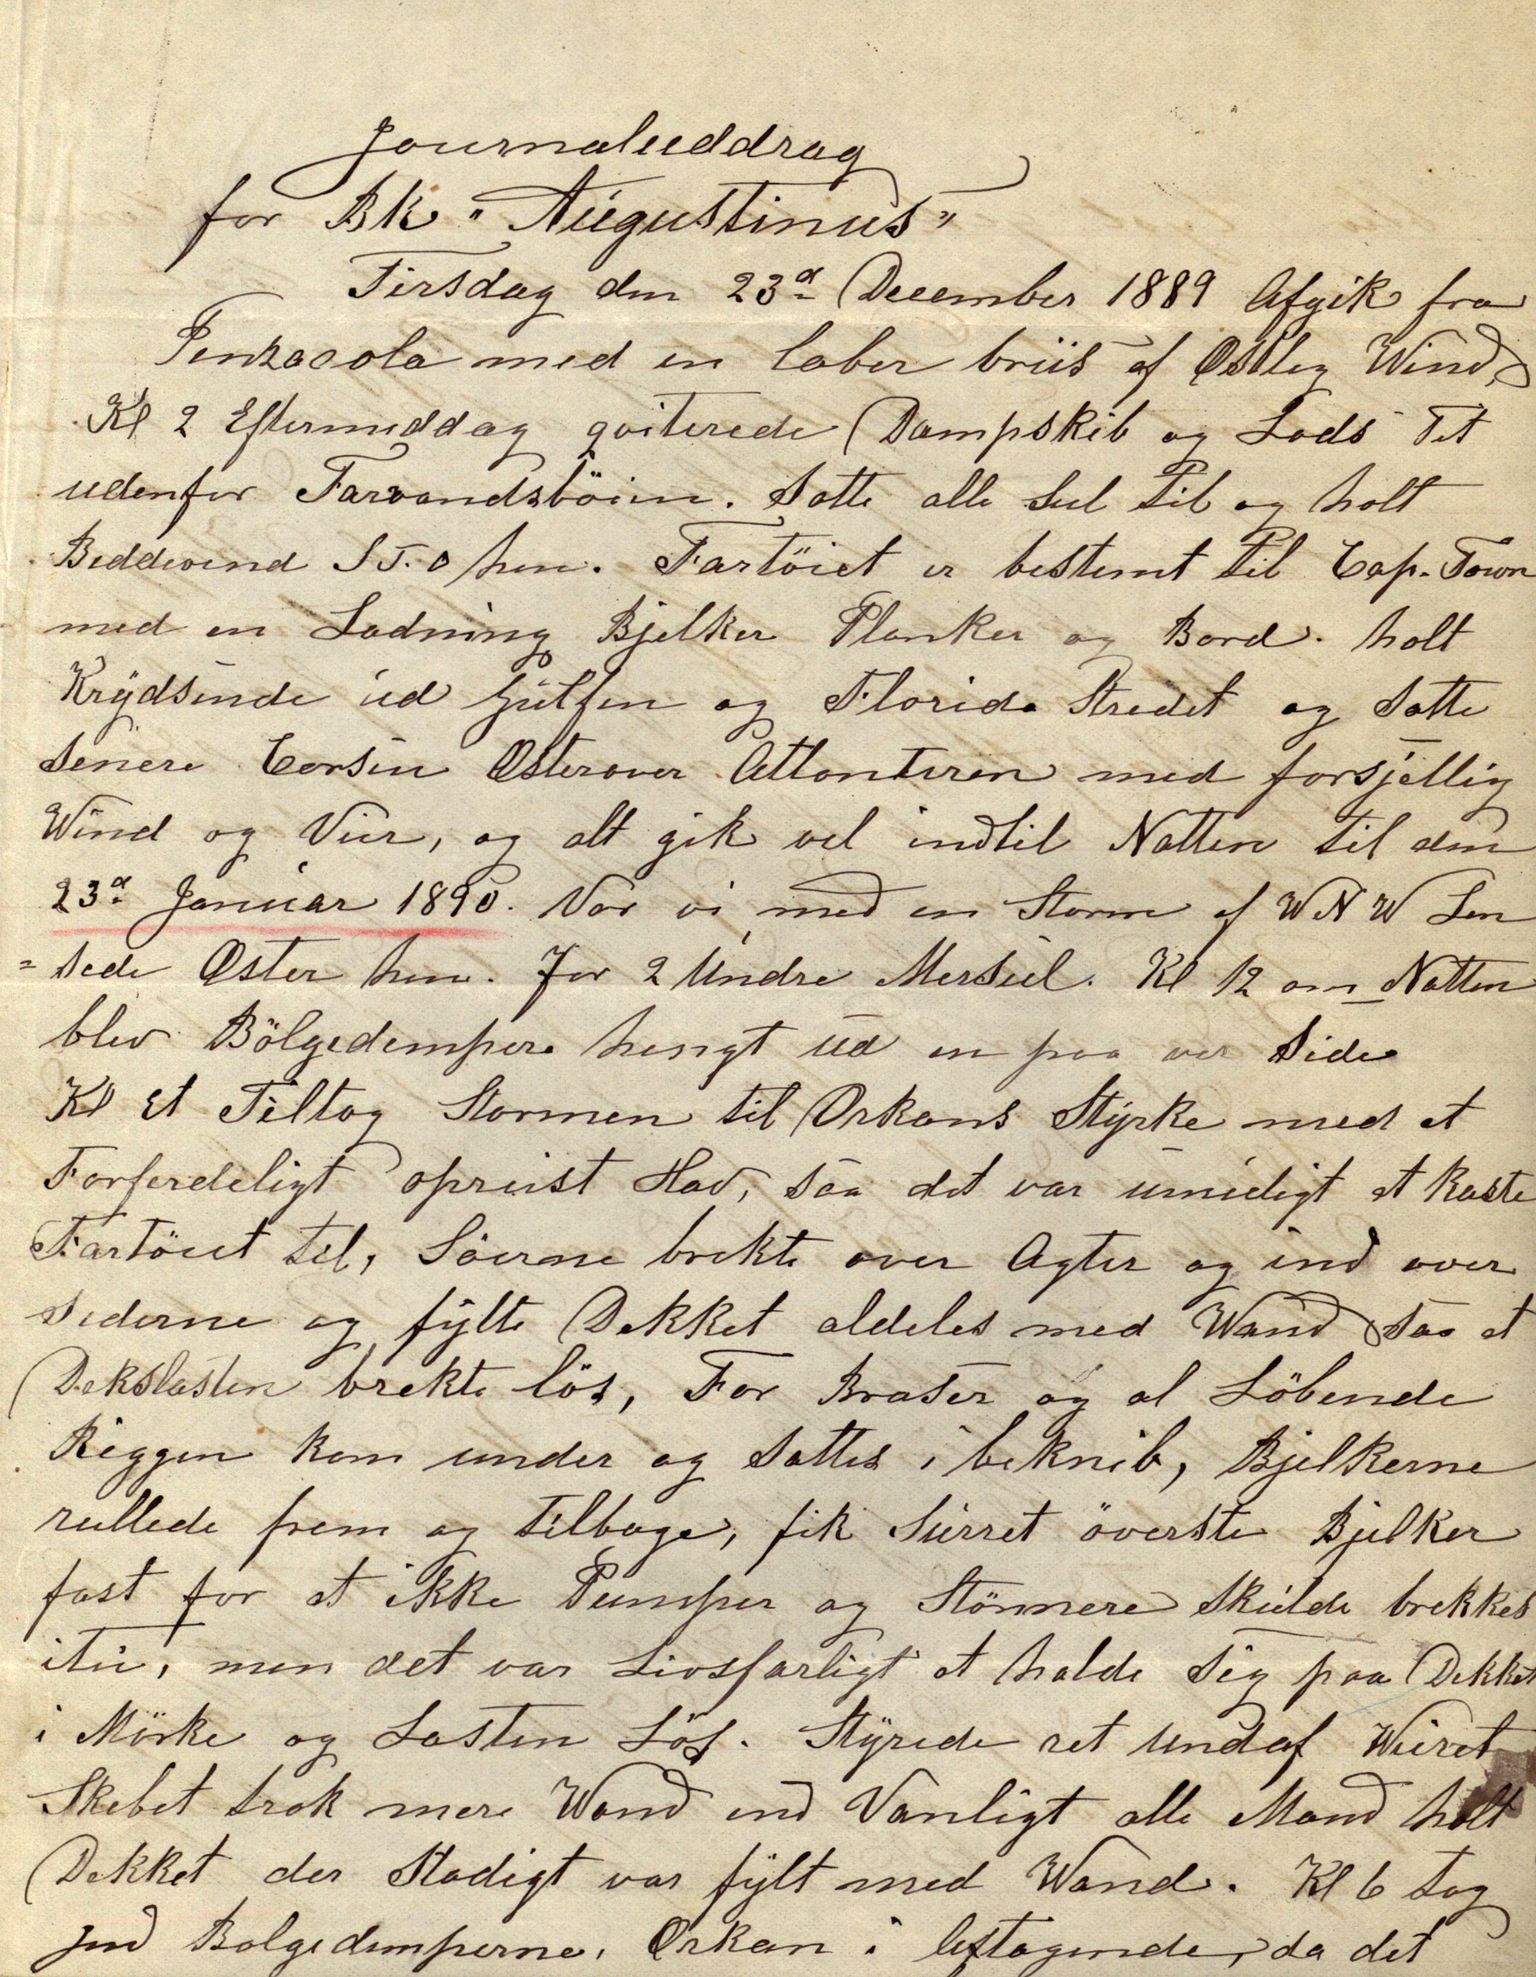 Journaluddrag
for Bk "Augustinus"
Tirsdag den 23d December 1889 Afgik fra
Penzacola med en laber briis af Østleg Wind,
Kl 2 Eftermeddag qviterede Dampskib og Lods Tet
udenfor Farvandsböien. Satte alle Seil til og holt
Beddevend S.T.O hen. Fartöiet er bestemt til Cap. Town
med en Ladning Bjelker Planker og Bord. holt
Krÿdsende ud Gulfen og Florida Stredet og Satte
Senere Corsen Østerover Atlanteren med forsjellig
Wind og Veir, og alt gik vel indtil Natten til den
23d Januar 1890. Var vi med en Storm af WNW Len
= sede Øster hen. For 2 Undre Merseil. Kl 12 om Natten
blev Bölgedempere hengt ud en paa ver Side
Kl Et Tiltog Stormen til Orkans Stÿrke med et
Forferdeligt opreist Hav, saa det var umúligt at kaste
Fartöiet til, Söerne brekte over Agter og ind over
Siderne og fÿlte Dekket aldeles med Wand saa at
Dekslasten brekte lös, For Braser og al Löbende
Riggen kom under og Sattes i beknib, Bjelkerne
rullede frem og tilbage, fik Surret överste Bjelker
fast for at ikke Pumper og Stönnere skulde brekkes
itu, men det var Livsfarligt at holde Sig paa Dekket
i Mörke og Lasten Lös. Stÿrede ret undaf Weiret
Skebet trak mere Wand end Vanligt alle Mand holt
Dekket der Stadigt var fÿlt med Wand. Kl 6 tog
Ind Bolgedemperne, Orkan i leftagende, da det